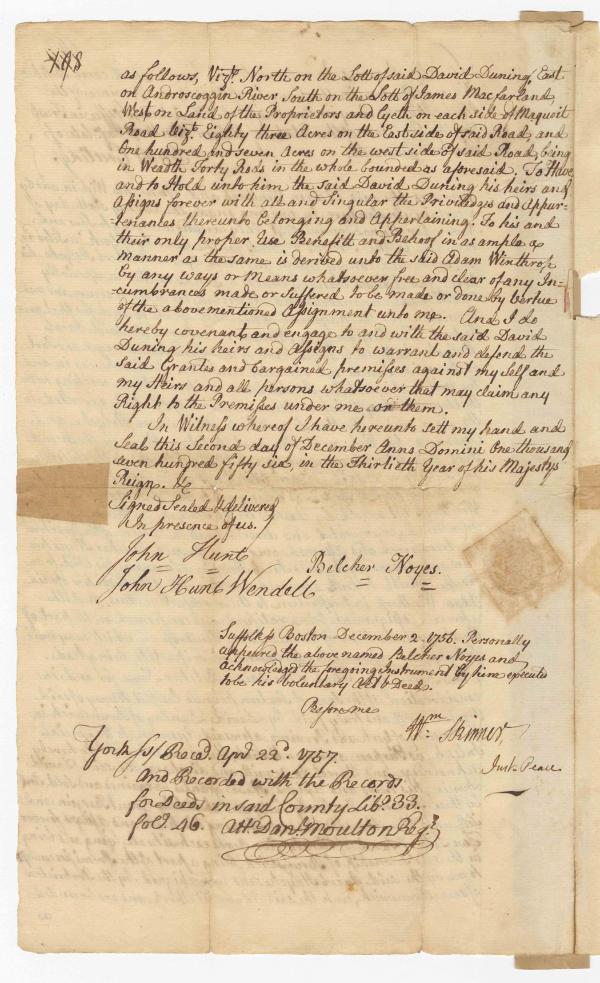 as follows, Vizt. North on the Lott of said David Duning, East
on Androscoggin River South on the Lott of James Macfarland
West on Land of the Proprietors and Lyeth on each side of Maquoit
Road Vizt. Eighty three Acres on the East side of said Road, and
One hundred and seven Acres on the west side of said Road, being
in Weadth Forty Rods in the whole bounded as aforesaid. To Have
and to Hold unto him the said David Duning his heirs and
Assigns forever with all and Singular the Priviledges and Appur-
tenances thereunto belonging and Appertaining. To his and
their only proper Use Benefitt and Behoof in as ample a
manner as the same is derived unto the said Adam Winthrop
by any ways or Means whatsoever free and clear of any In-
cumbrances made or Suffered to be made or done by vertue
of the abovementioned Assignment unto me. And I do
hereby covenant and engage to and with the said David
Duning his heirs and Assigns to warrant and defend the
said Grantes and bargained premisses against my self and
my Heirs and all persons whatsoever that may claim any
Right to the Premisses under me or them.
In Witness whereof I have hereunto sett my hand and
Seal this Second day of December Anno Domini One thousand
seven hundred fifty six, in the Thirtieth Year of his Majestys
Reign. &c
Signed Sealed & delivered
In presence of us.
John Hunt
Belcher Noyes.
John Hunt Wendell
Suffolk ss Boston December 2. 1756. Personally
appeared the above named Belcher Noyes and
acknowledged the foregoing Instrument by him executed
to be his voluntary Act & Deed.
Before me
Wm. Skinner,
Just. Peace
York ss/ Recd. Aprl 22d. 1757.
And Recorded with the Records
for Deeds in said County Libo. 33.
folo. 46. Attr. Danl. Moulton Regr.